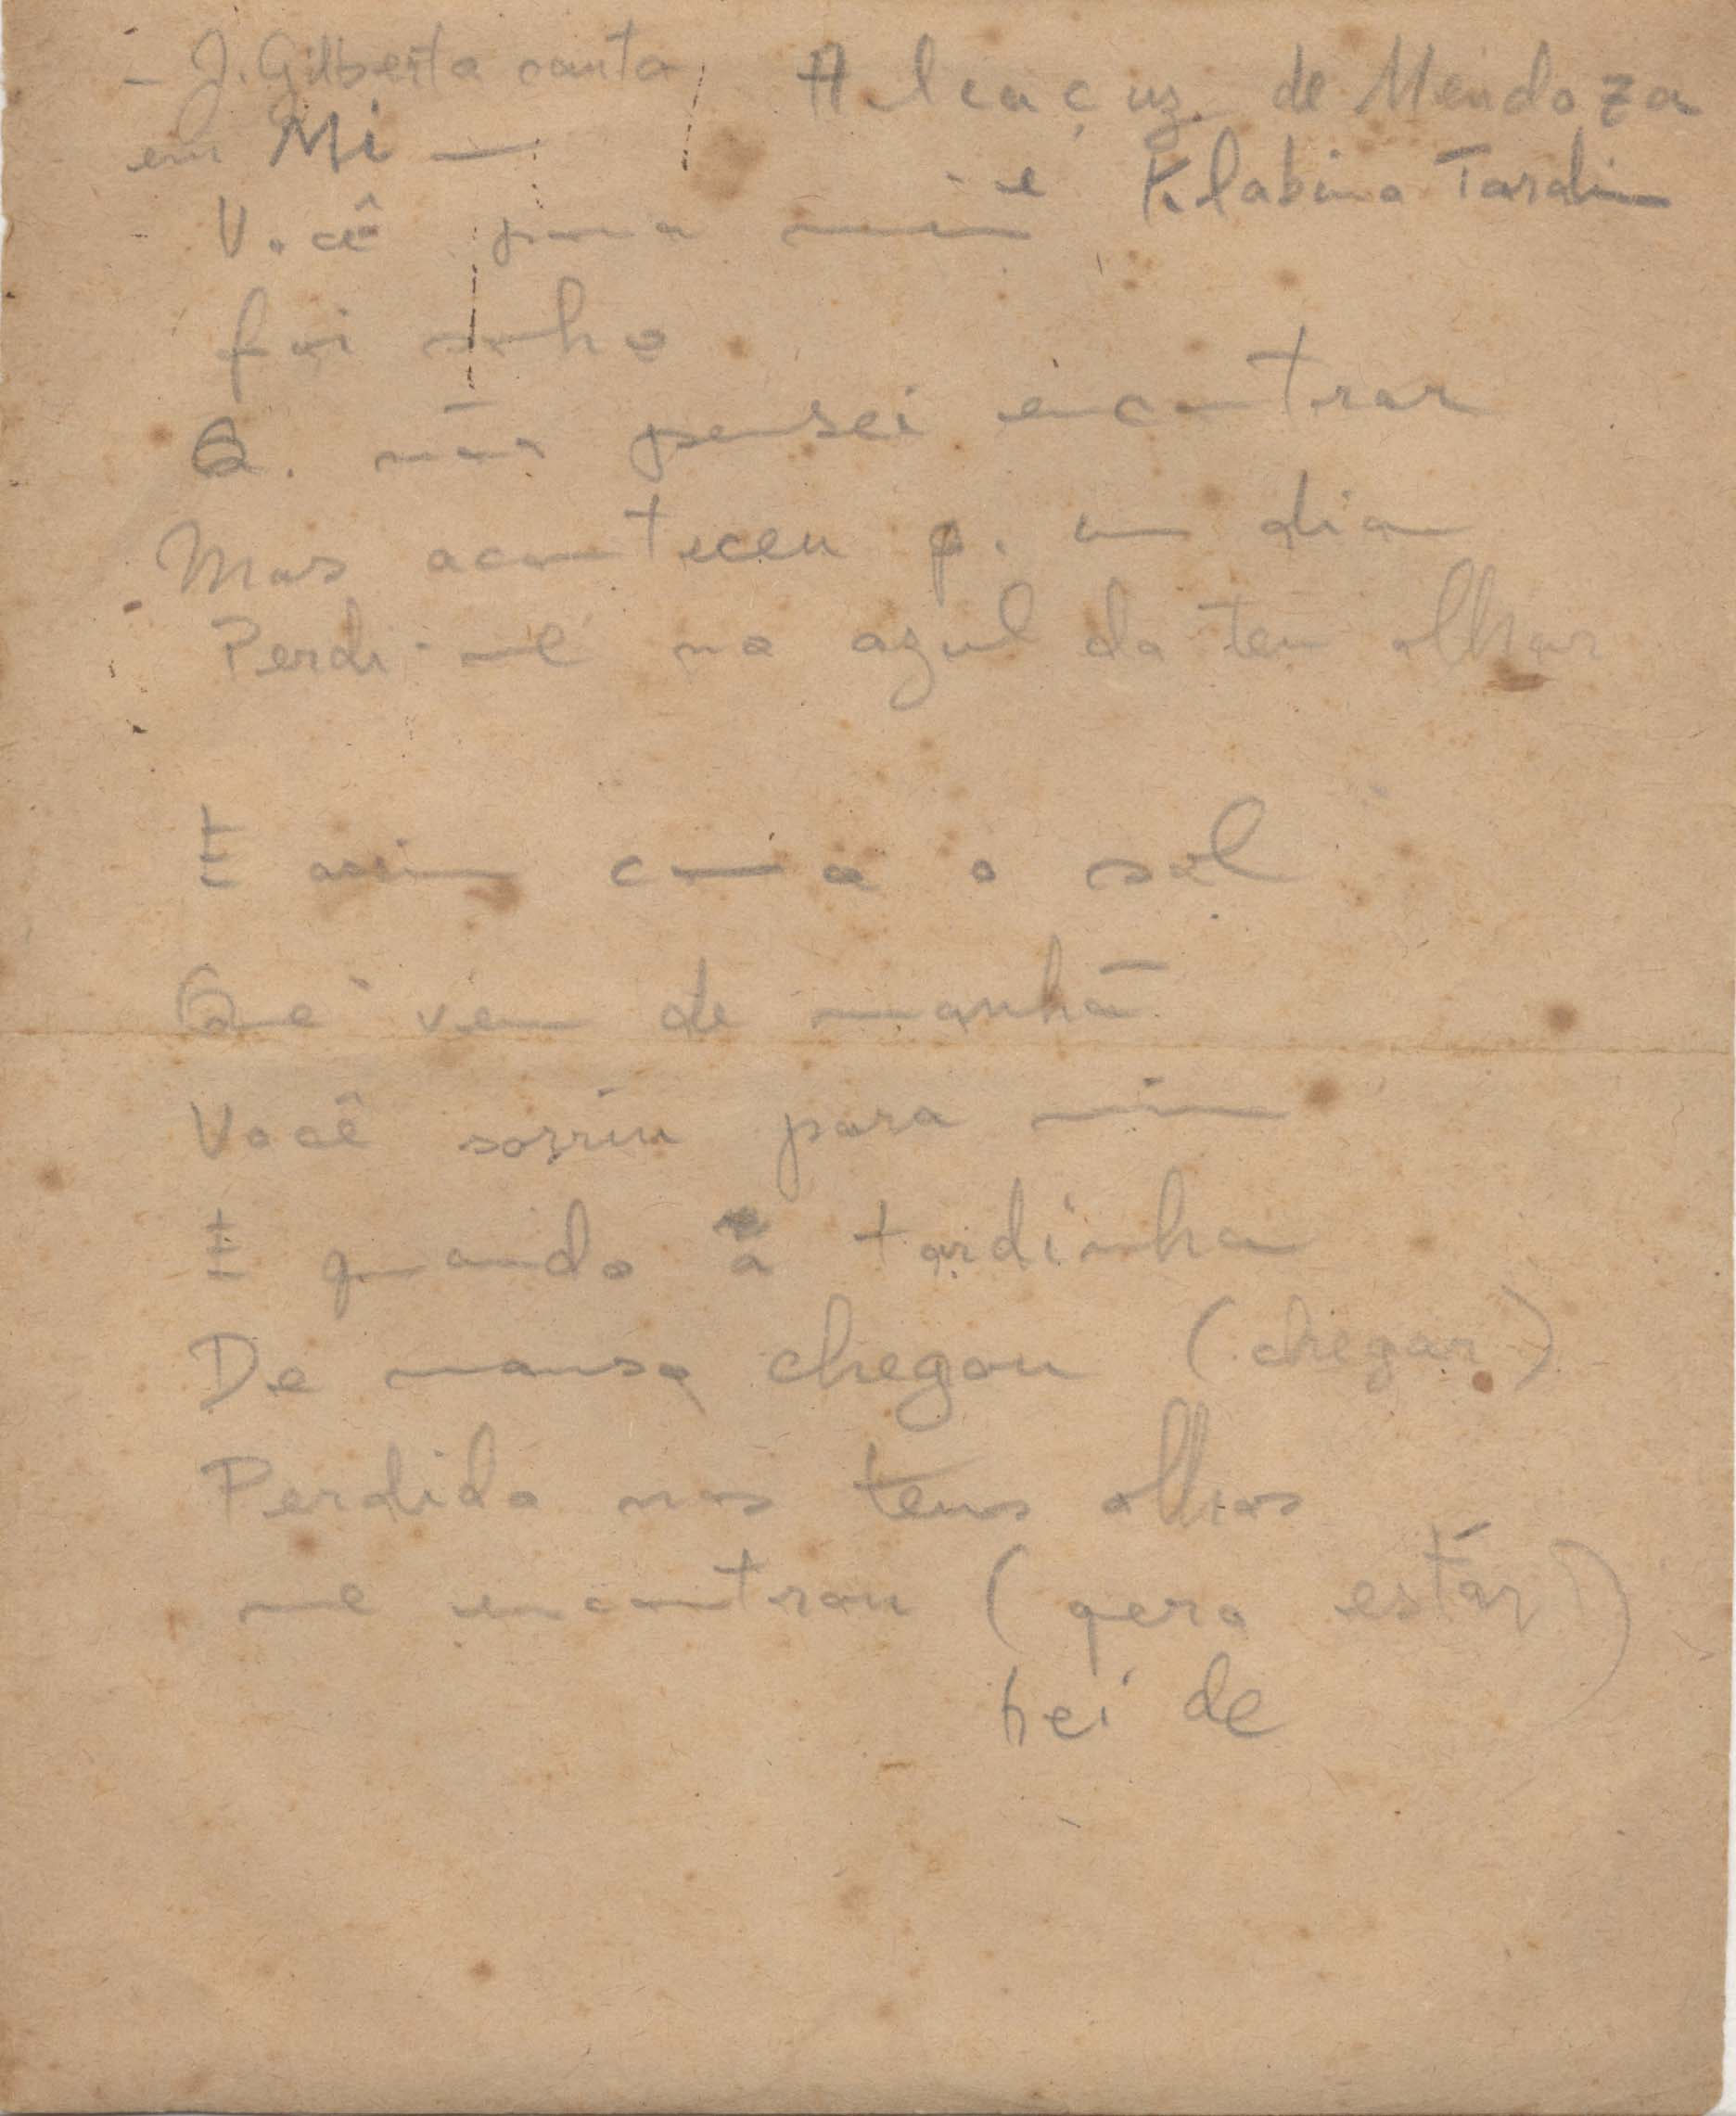 - J. Gilberto canta
em Mi —
Alcaçuz de Mendoza
e Klabina Tardin
Você para mim
foi sonho
Q. não pensei encontrar
Mas aconteceu q. um dia
Perdi-me no azul do teu olhar
E assim como o sol
Que vem de manhã
Você sorriu para mim
E quando à tardinha
De manso chegou (chegar)
Perdido nos teus olhos
me encontrou (qero estar)
hei de